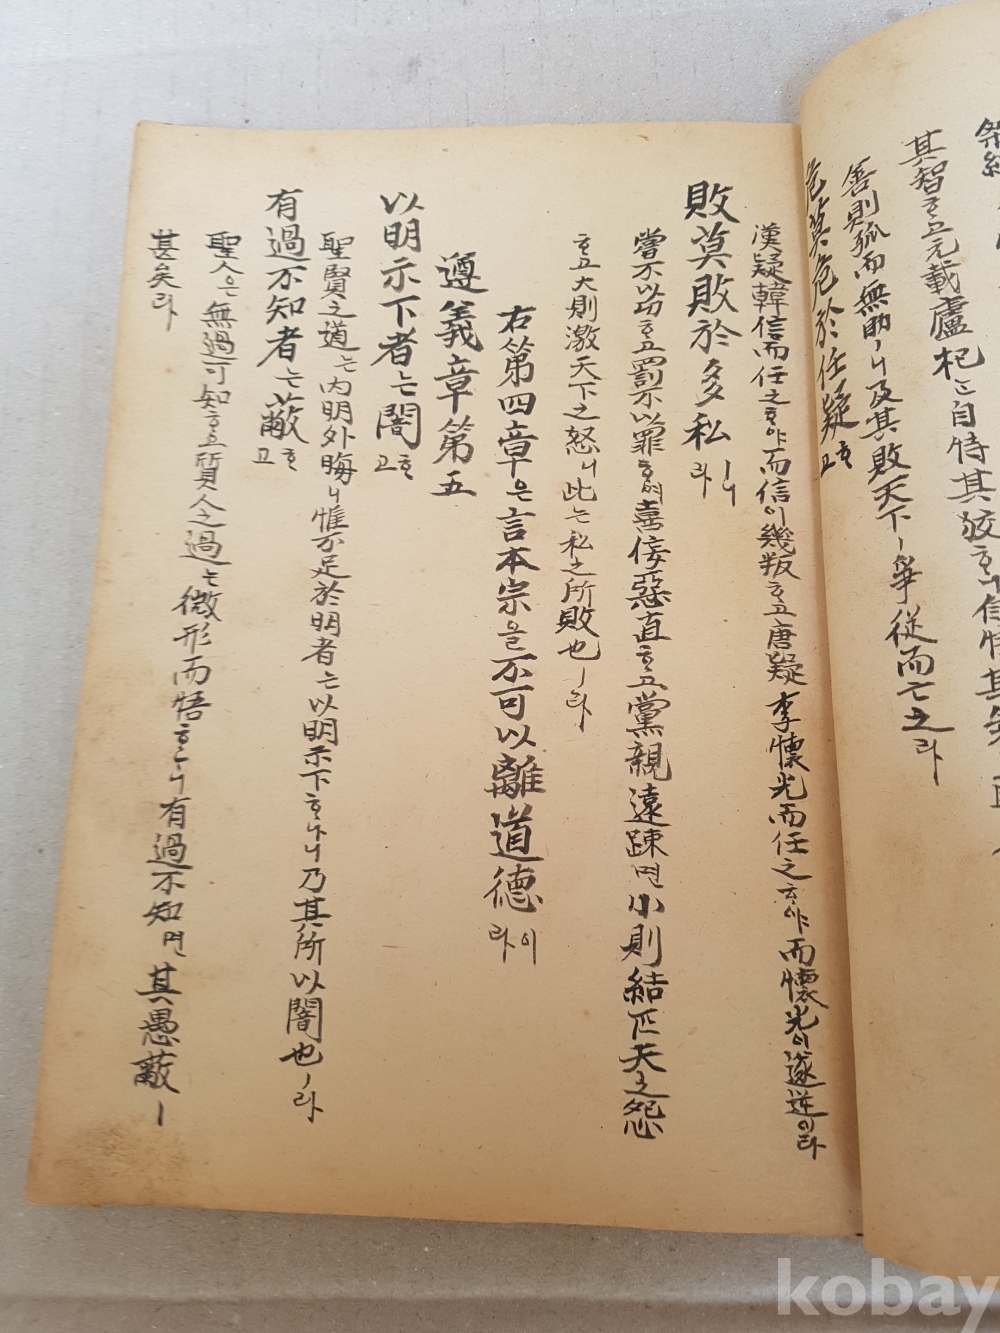 其智ᄒᆞ고元載盧杞는自恃其狡
善則孤而無助ㅣ니及其敗天下ㅣ爭從而亡之라
危莫危於任疑ᄒᆞ고
漢疑韓信而任之ᄒᆞ야而信이幾叛ᄒᆞ고唐疑李懷光而任之ᄒᆞ야而懷光이遂逆이라
敗莫敗於多私ㅣ니라
嘗不以功ᄒᆞ고罰不以罪ᄒᆞ며喜佞惡直ᄒᆞ고黨親遠踈면小則結匹夫之怨
ᄒᆞ고大則激天下之怒ㅣ니此는私之所敗也ㅣ라
右第四章은言本宗을不可以離道德이라
遵義章第五
以明示下者는闇ᄒᆞ고
聖賢之道는內明外晦ㅣ니惟不足於明者는以明示下ᄒᆞ나니乃其所以闇也ㅣ라
有過不知者는蔽ᄒᆞ고
聖人은無過可知ᄒᆞ고賢人之過는微形而悟ᄒᆞᄂᆞ니有過不知면其愚蔽ㅣ
甚矣라
kobay